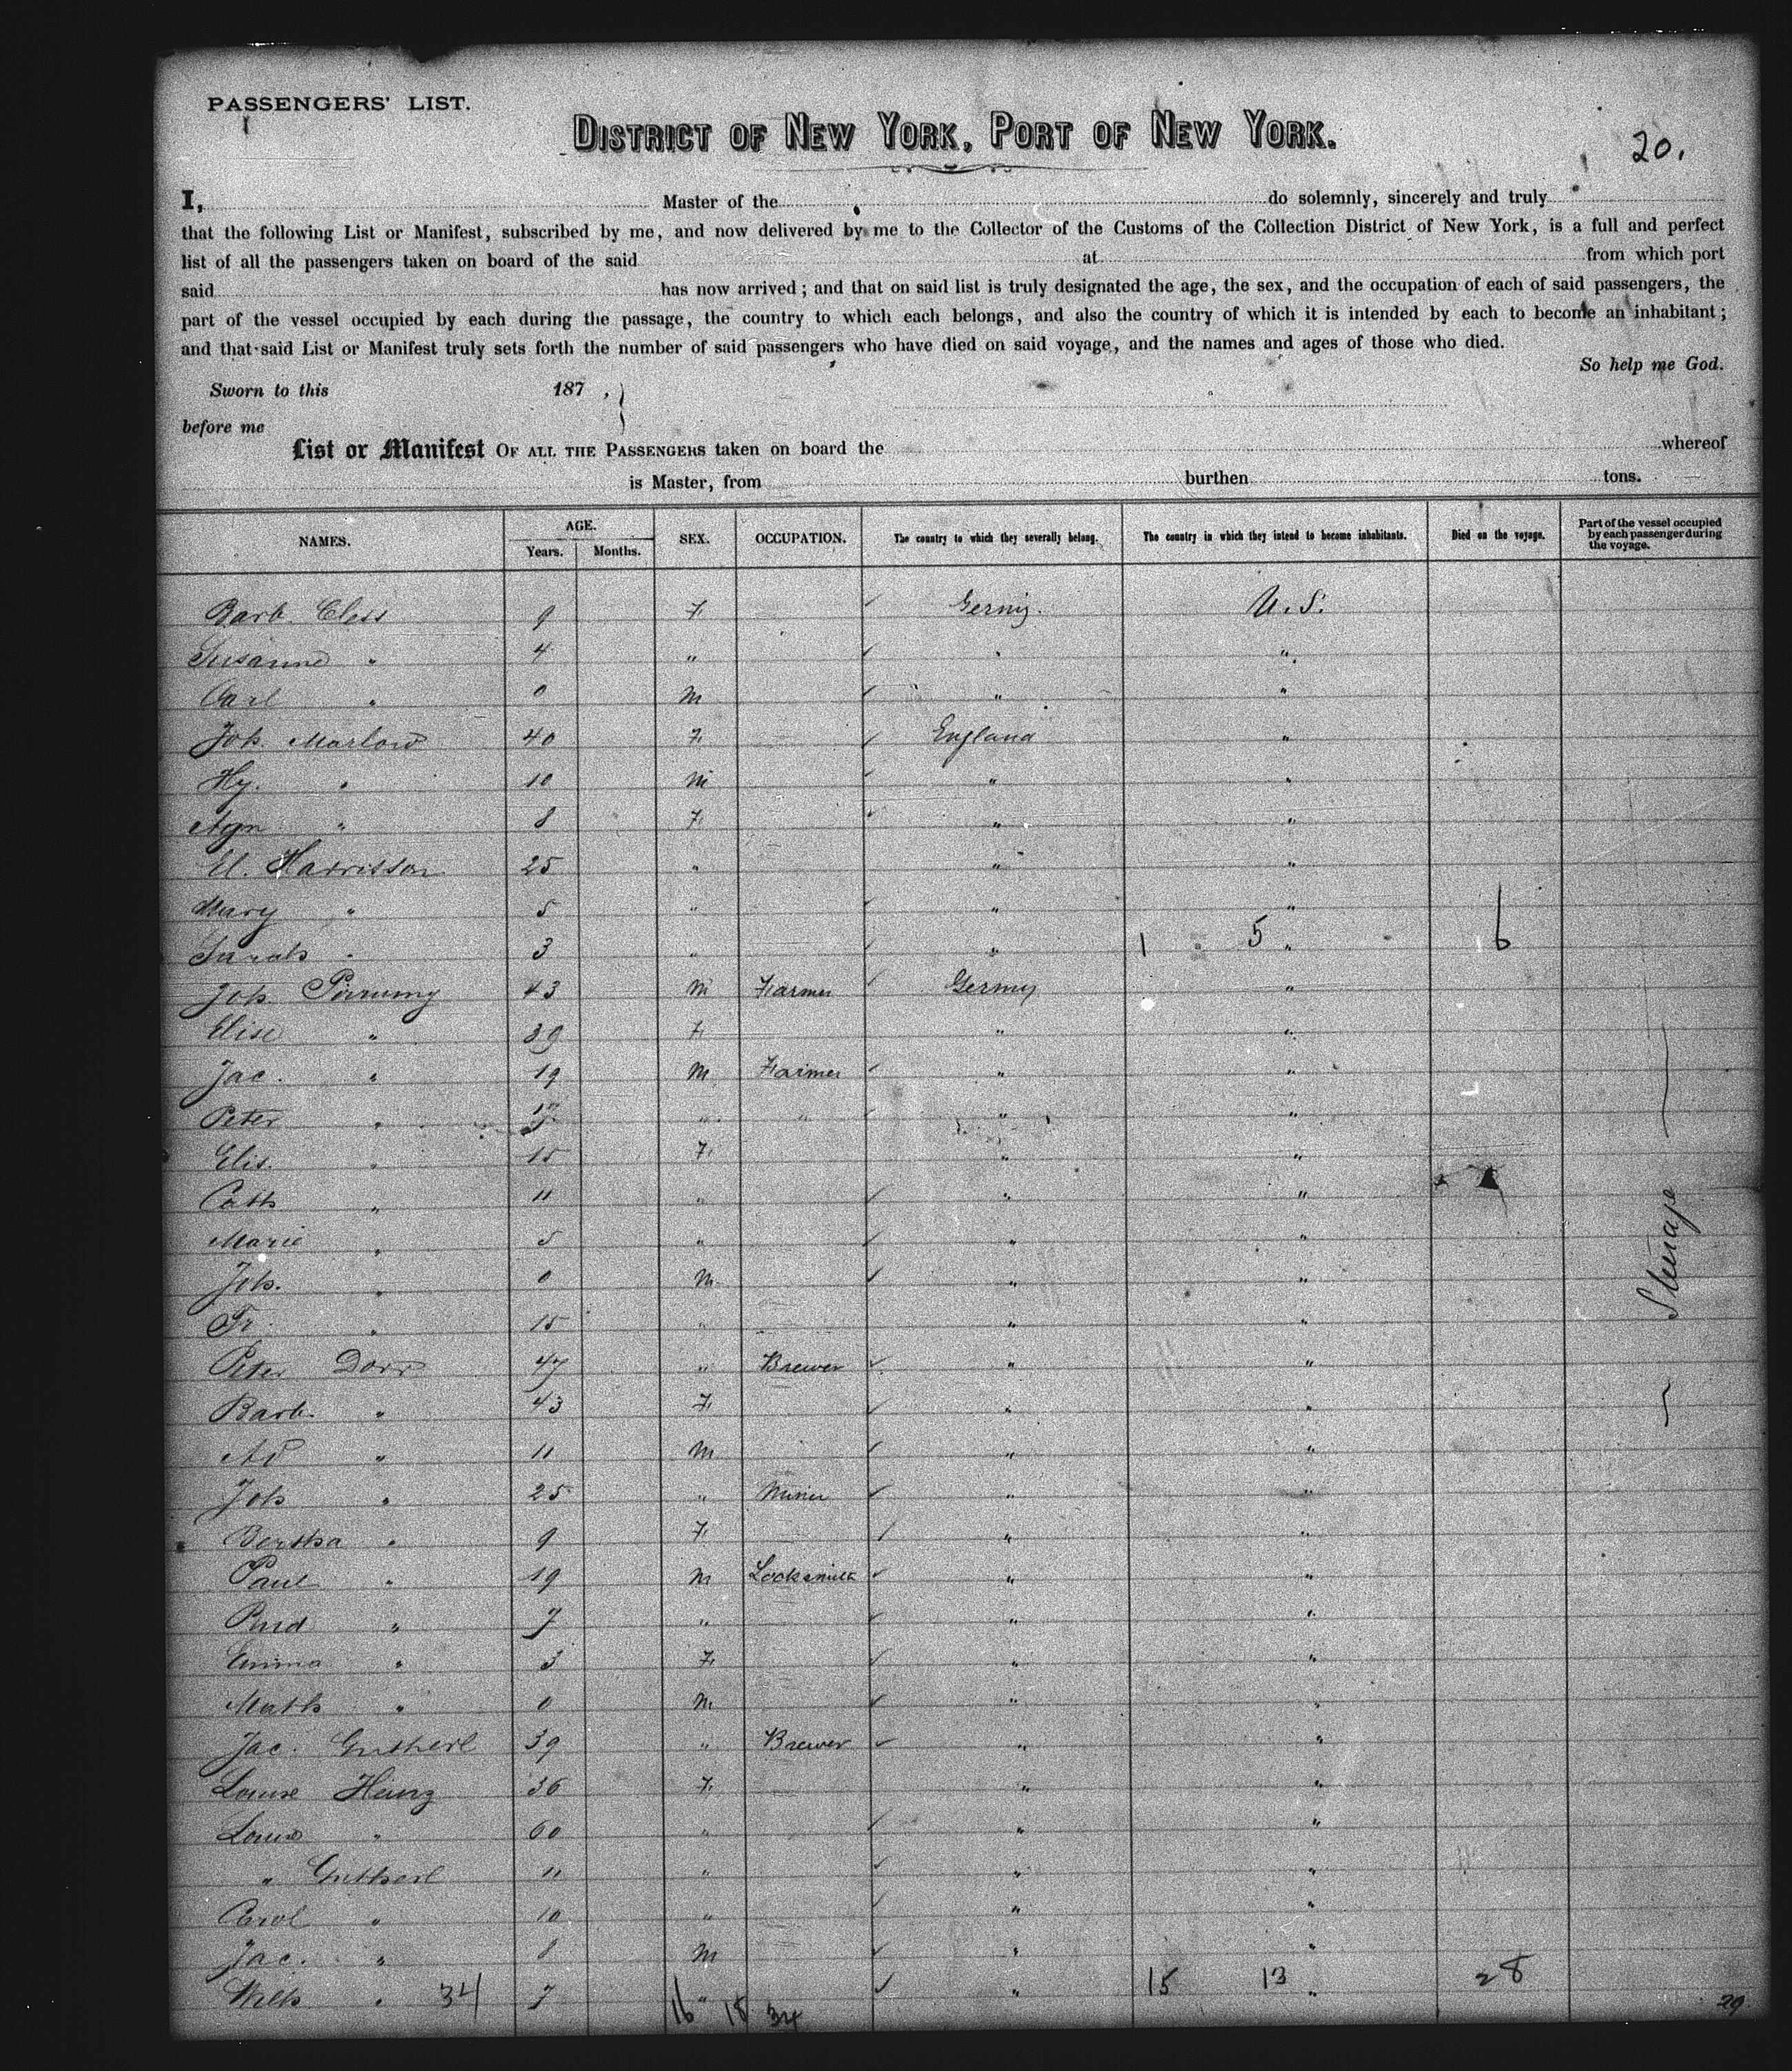 PASSENGERS' LIST.
DISTRICT OF NEW YORK, PORT OF NEW YORK.
20.
I, Master of the do solemnly, sincerely and truly
that the following List or Manifest, subscribed by me, and now delivered by me to the Collector of the Customs of the Collection District of New York, is a full and perfect
list of all the passengers taken on board of the said at from which port
said has now arrived; and that on said list is truly designated the age, the sex, and the occupation of each of said passengers, the
part of the vessel occupied by each during the passage, the country to which each belongs, and also the country of which it is intended by each to become an inhabitant;
and that said List or Manifest truly sets forth the number of said passengers who have died on said voyage, and the names and ages of those who died.
So help me God.
Sworn to this 187 ,
before me
List or Manifest OF ALL THE PASSENGERS taken on board the whereof
is Master, from burthen tons.
NAMES. AGE. Years. Months. SEX. OCCUPATION. The country to which they severally belong. The country in which they intend to become inhabitants. Died on the voyage. Part of the vessel occupied by each passenger during the voyage.
Barb. Cless 9 F. Germy. U. S.
Susanne " 4 " " "
Carl " 0 M " "
Joh. Marlow 40 F. England "
Hy. " 10 M " "
Agn " 8 F. " "
El. Harrisson 25 " " "
Mary " 5 " " "
Sarah " 3 " " 1 5 " 6
Joh. 43 M Farmer Germy "
Elise " 39 F. " "
Jac. " 19 M Farmer " "
Peter " 17 " " " "
Elis. " 15 F. " "
Cath " 11 " " "
Marie " 5 " " "
Joh. " 0 M. " "
Fr. " 15 " " "
Steerage
Peter Dorr 47 " Brewer " "
Barb. " 43 F. " "
Ad " 11 M " "
Joh " 25 " Miner " "
Bertha " 9 F. " "
Paul " 19 M Locksmith " "
" 7 " " "
Emma " 3 F. " "
Math " 0 M " "
Jac. Gutherl 39 " Brewer " "
Louise Hanz 36 F. " "
Louise " 60 " " "
" Gutherl 11 " " "
Carol " 10 " " "
Jac. " 8 M " "
Wilh " 34 7 " " 15 13 " 28
16 18 34
29